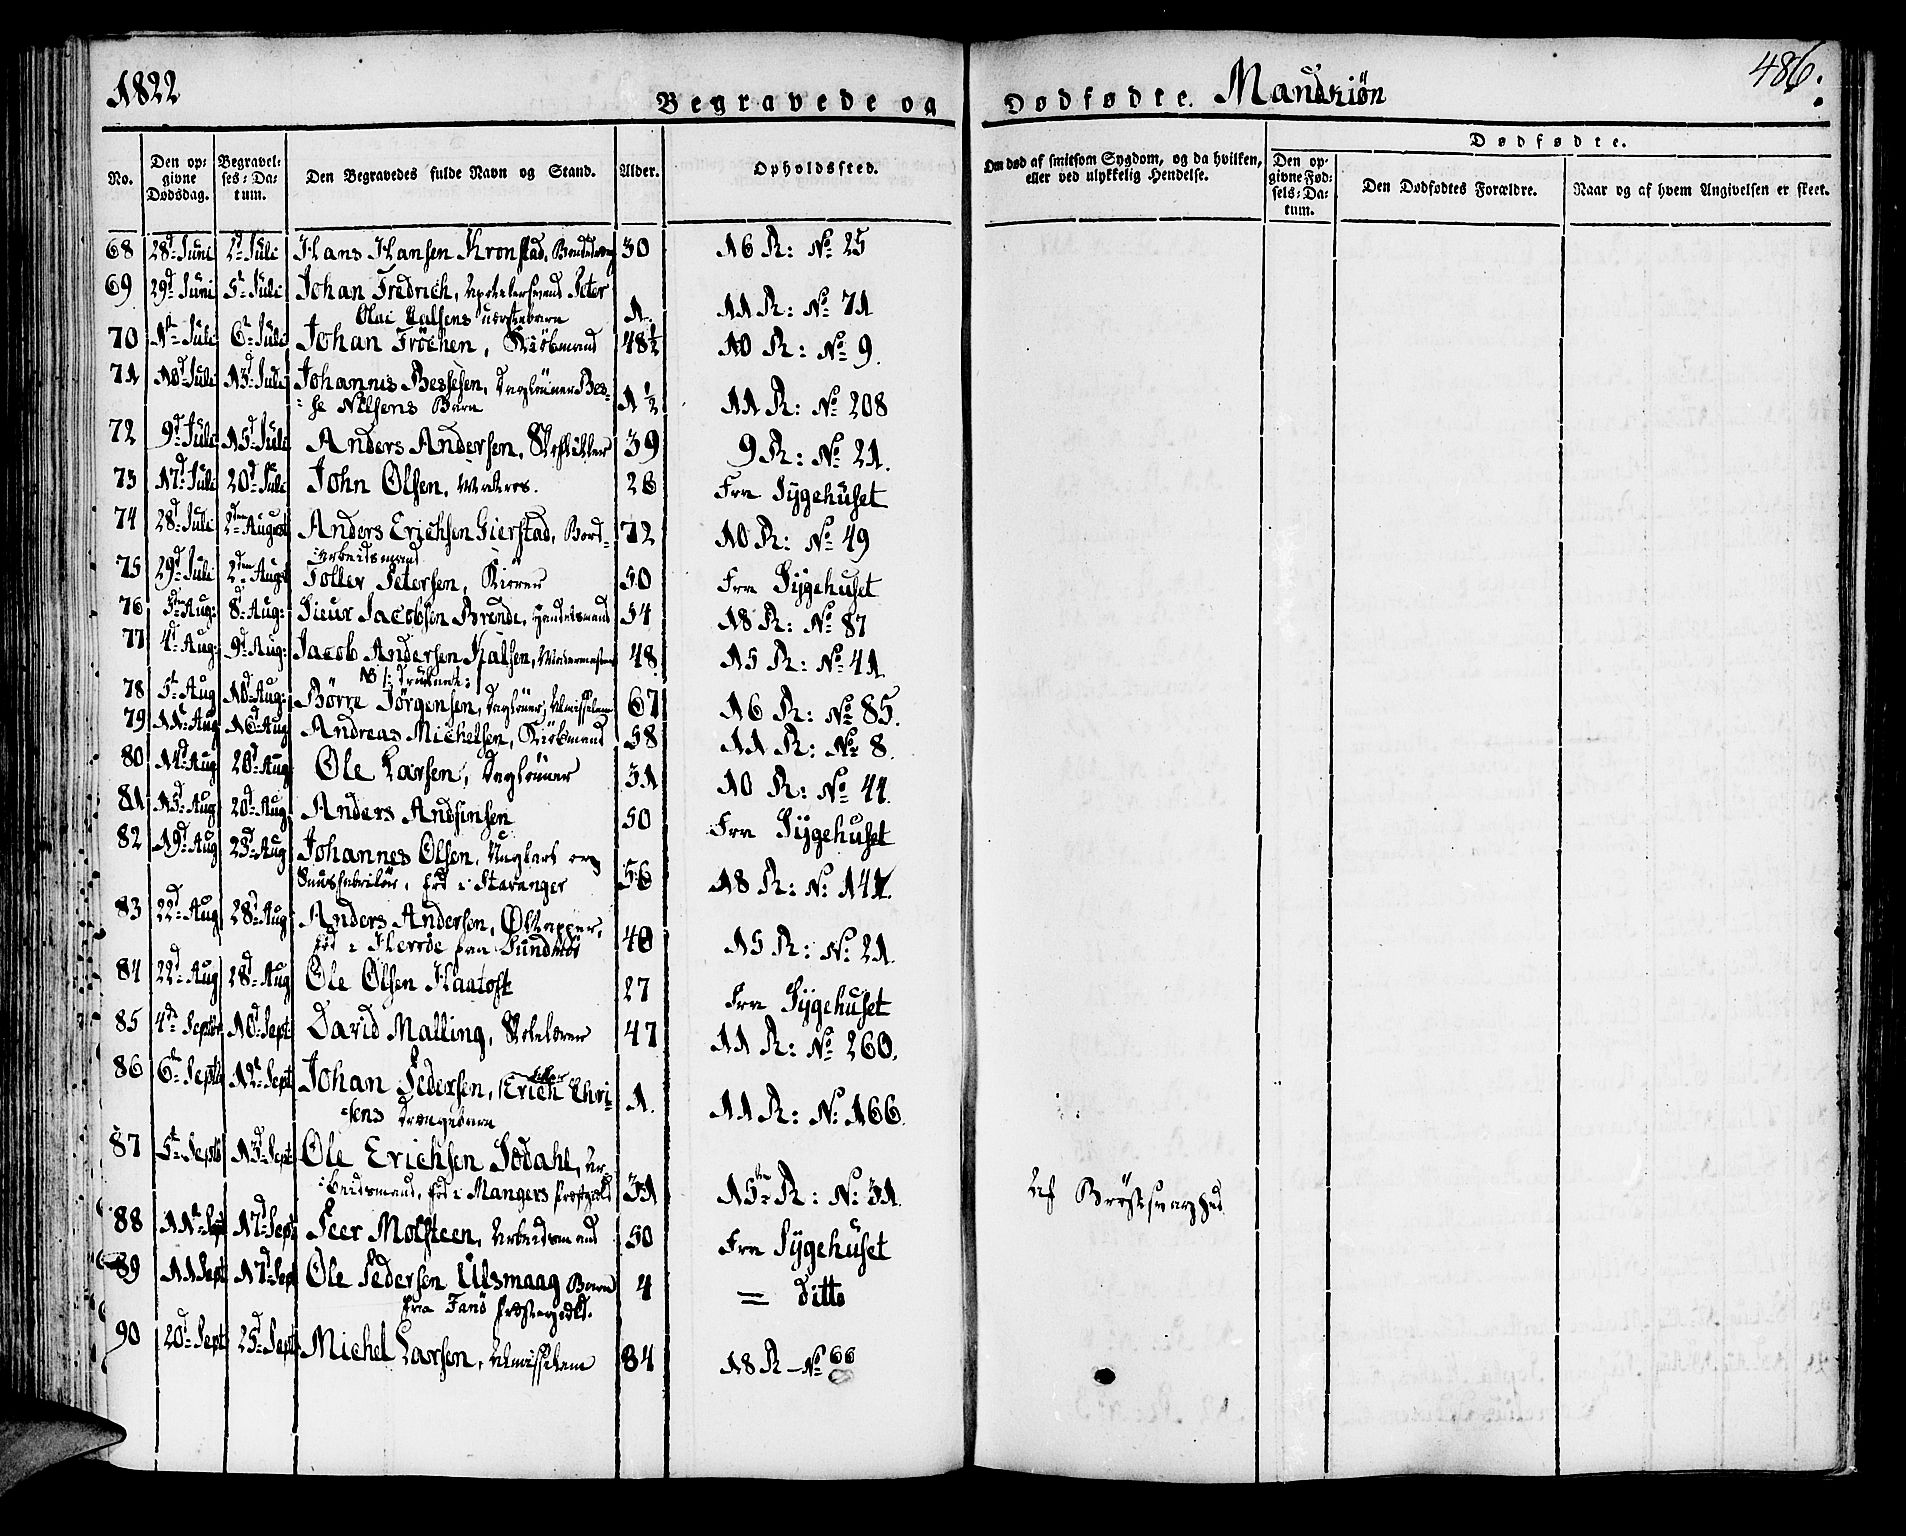 1822
Begravede og Dødfødte. Mandkiøn
486.
No.
Den opgivne Dødsdag.
Begravelses-Datum.
Den Begravedes fulde Navn og Stand.
Alder.
Opholdssted.
Om død af smitsom Sygdom, og da hvilken, eller ved ulykkelig Hendelse.
Dødfødte.
Den opgivne Fødsels-Datum.
Den Dødfødtes Forældre.
Naar og af hvem Angivelsen er skeet.
68 28d Juni 2d Juli Hans Hansen Kronstad, 30 16 R: No 25
69 29d Juni 5t Juli Johan Fredrich, Peter
Olai 1. 11 R: No 71
70 1st Juli 6t Juli Johan Fröchen, Kiöbmand 48½ 10 R: No 9.
71 10d Juli 13d Juli Johannis Bessesen, Daglönner Bes-
se Nilsens Barn 1½ 11 R: No 208
72 9d Juli 15d Juli Anders Andersen, Skoeflikker 39 9 R: No 21.
73 17d Juli 20d Juli John Olsen, Matros. 26 Fra Sygehuset
74 28d Juli 2den August Anders Erichsen Gierstad, Bord-
arbeidsmand 72 10 R: No 49
75 29d Juli 2den Aug Toller Petersen, Kiører 50 Fra Sygehuset
76 5ten Aug: 8d Aug: Sieur Jacobsen Brende, Handelsmand 54 18 R: No 87
77 4d Aug: 9d Aug: Jacob Andersen Kalsen, 48 15 R: No 41
NB /: druknet :/
78 5t Aug 10d Aug: Börre Jörgensen, Daglönner, Almisselem 67 16 R: No 85.
79 11t Aug 16d Aug Andreas Michelsen, Kiöbmand 58 11 R: No 8.
80 14d Aug 20d Aug Ole Larsen, Daglönner 31 10 R: No 44.
81 15d Aug 20d Aug Anders Andsinsen 50 Fra Sygehuset
82 19d Aug 23d Aug Johannes Olsen, og
Snusfabrikör, föd i Stavanger 56 18 R: No: 141.
83 22d Aug 28d Aug Anders Andersen, Öltapper,
föd i Herröe paa Sundmör 40 15 R: No: 21.
84 22d Aug 28d Aug Ole Olsen Haatoft 27 Fra Sygehuset
85 4de Septbr 10d Sept: David Malling, Skolelærer 47 11 R: No 260.
86 6t Septb 12t Sept Johan Pedersen, Erich Chri-
sens Drengebarn 1. 11 R: No: 166.
87 5t Septb 13d Sept Ole Erichsen Södahl, Ar-
beidsmand, föd i Mangers Præstegield 31 15de R: No: 31. Af Brøstsvaghed
88 11t Sep 17d Sept Peer Molsteen, Arbeidsmand 50 Fra Sygehuset
89 11 Sept 17d Sept Ole Pedersen Ulsmaag Barn
fra Fanö Præstegield. 4 = Ditto
90 20d Sept 25d Sept Michel Larsen, Almisselem 84 18 R - No 66